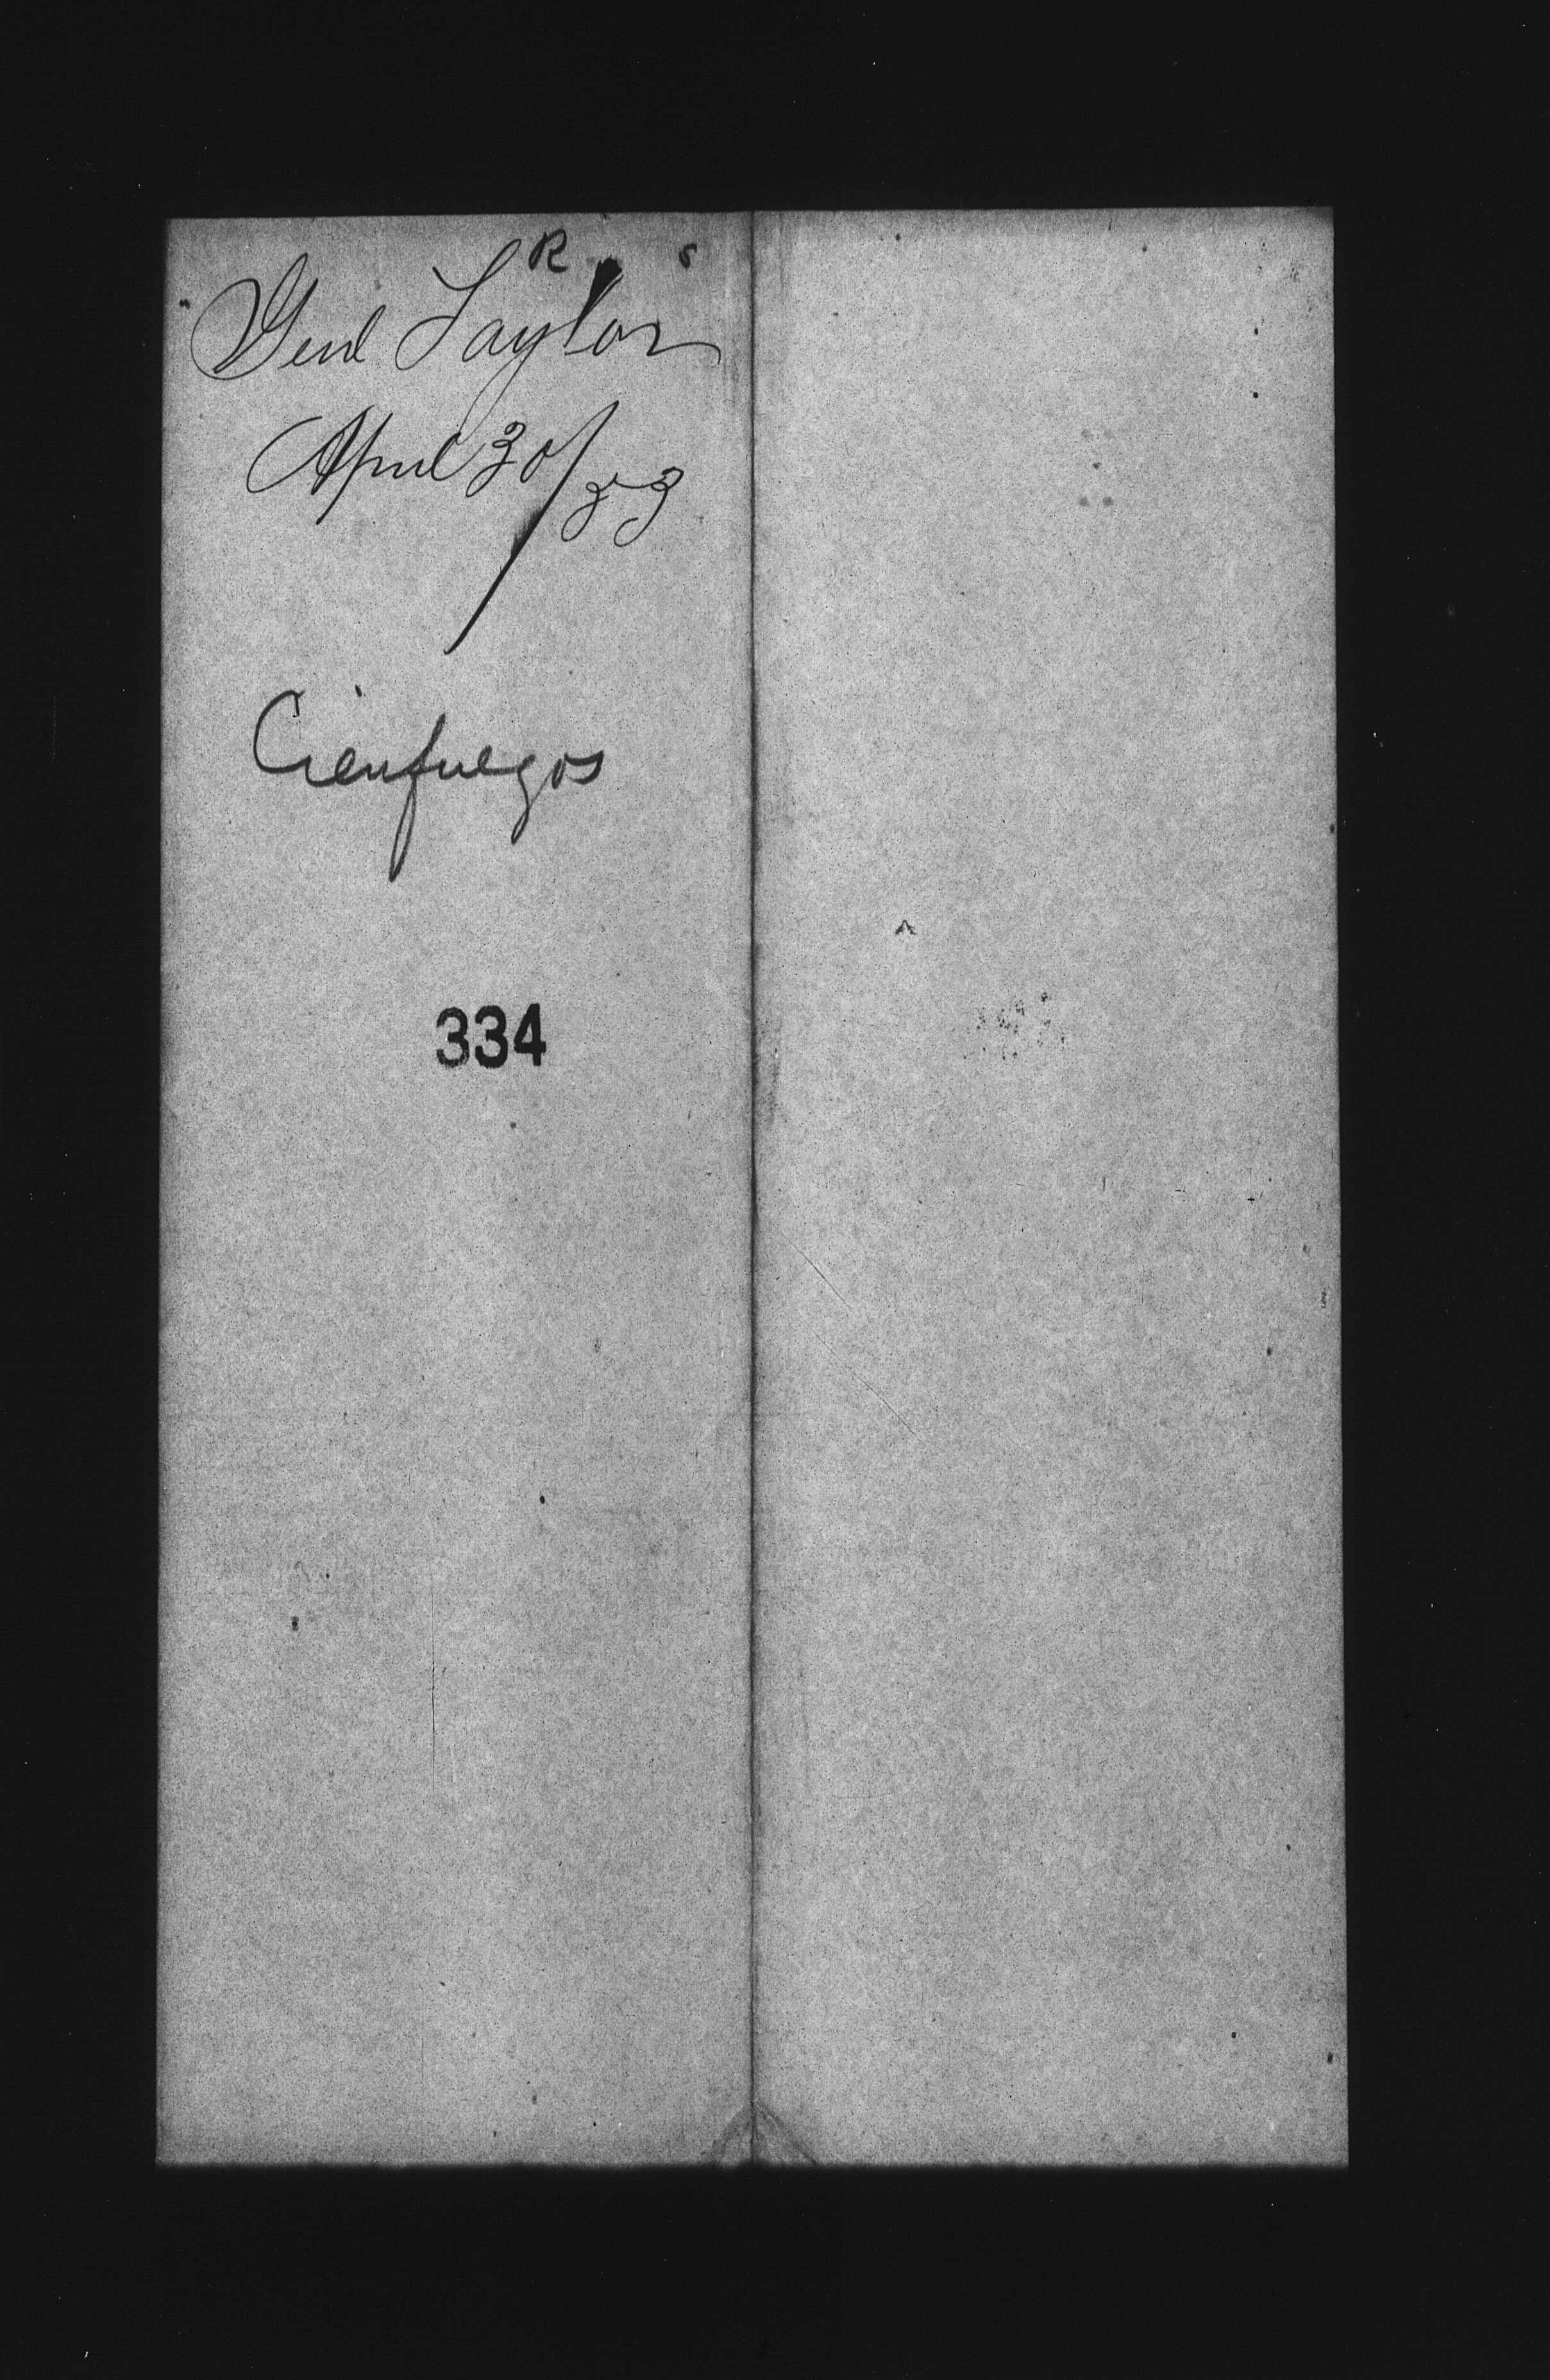 R
Genl Taylor
April 30/53
Cienfuegos
334